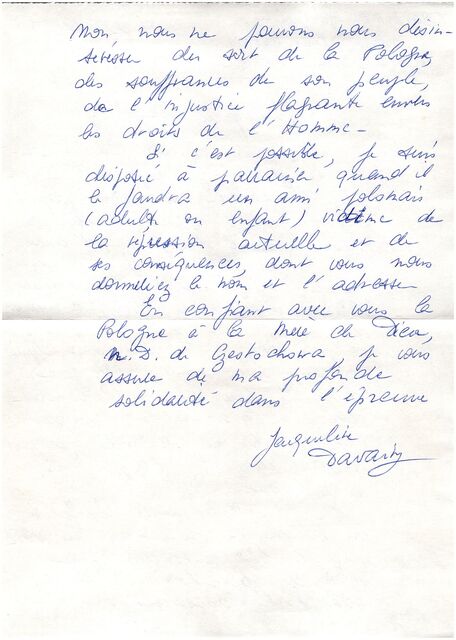 Non, nous ne pouvons nous désin-
téresser du sort de la Pologne,
des souffrances de son peuple,
de l'injustice flagrante envers
les droits de l'Homme -
Si c'est possible, je suis
disposé à parrainer quand il
le faudra un ami polonais
(adulte ou enfant) victime de
la répression actuelle et de
ses conséquences, dont vous nous
donneriez le nom et l'adresse
En confiant avec vous la
Pologne à la Mère de Dieu,
N.D. de Czestochowa, je vous
assure de ma profonde
solidarité dans l'épreuve
Jacqueline